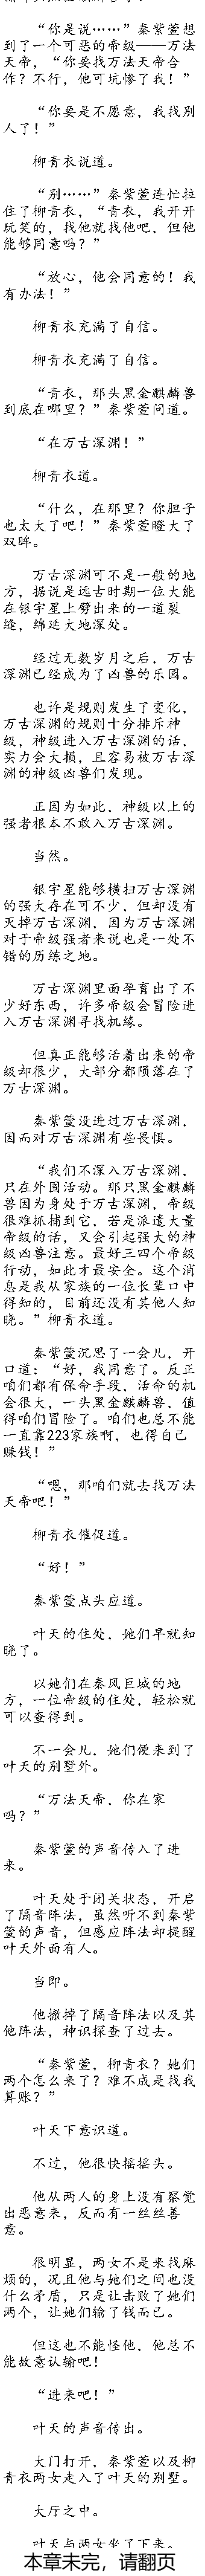 “你是说……”秦紫萱想
到了一个可恶的帝级——万法
天帝，“你要找万法天帝合
作？不行，他可坑惨了我！”
“你要是不愿意，我找别
人了！”
柳青衣说道。
“别……”秦紫萱连忙拉
住了柳青衣，“青衣，我开开
玩笑的，找他就找他吧，但他
能够同意吗？”
“放心，他会同意的！我
有办法！”
柳青衣充满了自信。
柳青衣充满了自信。
“青衣，那头黑金麒麟兽
到底在哪里？”秦紫萱问道。
“在万古深渊！”
柳青衣道。
“什么，在那里？你胆子
也太大了吧！”秦紫萱瞪大了
双眸。
万古深渊可不是一般的地
方，据说是远古时期一位大能
在银宇星上劈出来的一道裂
缝，绵延大地深处。
经过无数岁月之后，万古
深渊已经成为了凶兽的乐园。
也许是规则发生了变化，
万古深渊的规则十分排斥神
级，神级进入万古深渊的话，
实力会大损，且容易被万古深
渊的神级凶兽们发现。
正因为如此，神级以上的
强者根本不敢入万古深渊。
当然。
银宇星能够横扫万古深渊
的强大存在可不少，但却没有
灭掉万古深渊，因为万古深渊
对于帝级强者来说也是一处不
错的历练之地。
万古深渊里面孕育出了不
少好东西，许多帝级会冒险进
入万古深渊寻找机缘。
但真正能够活着出来的帝
级却很少，大部分都陨落在了
万古深渊。
秦紫萱没进过万古深渊，
因而对万古深渊有些畏惧。
“我们不深入万古深渊，
只在外围活动。那只黑金麒麟
兽因为身处于万古深渊，帝级
很难抓捕到它，若是派遣大量
帝级的话，又会引起强大的神
级凶兽注意。最好三四个帝级
行动，如此才最安全。这个消
息是我从家族的一位长辈口中
得知的，目前还没有其他人知
晓。”柳青衣道。
秦紫萱沉思了一会儿，开
口道：“好，我同意了。反正
咱们都有保命手段，活命的机
会很大，一头黑金麒麟兽，值
得咱们冒险了。咱们也总不能
一直靠223家族啊，也得自己
赚钱！”
“嗯，那咱们就去找万法
天帝吧！”
柳青衣催促道。
“好！”
秦紫萱点头应道。
叶天的住处，她们早就知
晓了。
以她们在秦风巨城的地
方，一位帝级的住处，轻松就
可以查得到。
不一会儿，她们便来到了
叶天的别墅外。
“万法天帝，你在家
吗？”
秦紫萱的声音传入了进
来。
叶天处于闭关状态，开启
了隔音阵法，虽然听不到秦紫
萱的声音，但感应阵法却提醒
叶天外面有人。
当即。
他撤掉了隔音阵法以及其
他阵法，神识探查了过去。
“秦紫萱，柳青衣？她们
两个怎么来了？难不成是找我
算账？”
叶天下意识道。
不过，他很快摇摇头。
他从两人的身上没有察觉
出恶意来，反而有一丝丝善
意。
很明显，两女不是来找麻
烦的，况且他与她们之间也没
什么矛盾，只是让击败了她们
两个，让她们输了钱而已。
但这也不能怪他，他总不
能故意认输吧！
“进来吧！”
叶天的声音传出。
大门打开，秦紫萱以及柳
青衣两女走入了叶天的别墅。
大厅之中。
叶天与两女坐了下来。
本章未完，请翻页